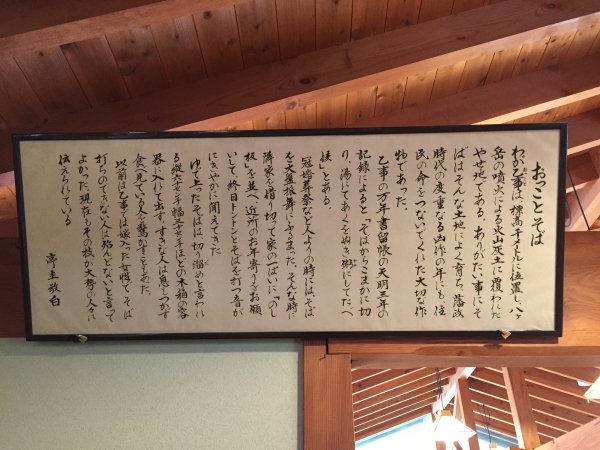 おっことそば
わが乙事は、標高千メートルに位置し、八ヶ
岳の噴火による火山灰土に覆われた
やせ地である。ありがたい事にそ
ばはそんな土地によく育ち、藩政
時代の度重なる凶作の年にも、住
民の命をつないでくれた大切な作
物であった。
乙事の万年書留帳の天明三年の
記録によると「そばからこまかに切
り、湯にてあくをぬき粥にしてたべ
候」とある。
冠婚葬祭など人よりの時には、そば
を大盤振舞にふるまった。そんな時に
隣家を借り切って家の一ぱいに「のし
板」を並べ、近所のお年寄りをお願
いして、終日トントンとそばを打つ音が
にぎやかに聞えてきた
ゆで上ったそばは切り溜めと言われ
る縦六十 幅三十 ほどの木箱の容
器に入れて出す。すきな人は息もつかず
食べ見ている人を驚かすこともあった。
以前は乙事では嫁入った女性で、そば
打ちのできない人は殆んどないと言って
よかった。現在もその技が大勢の人々に
伝えられている
亭主敬白